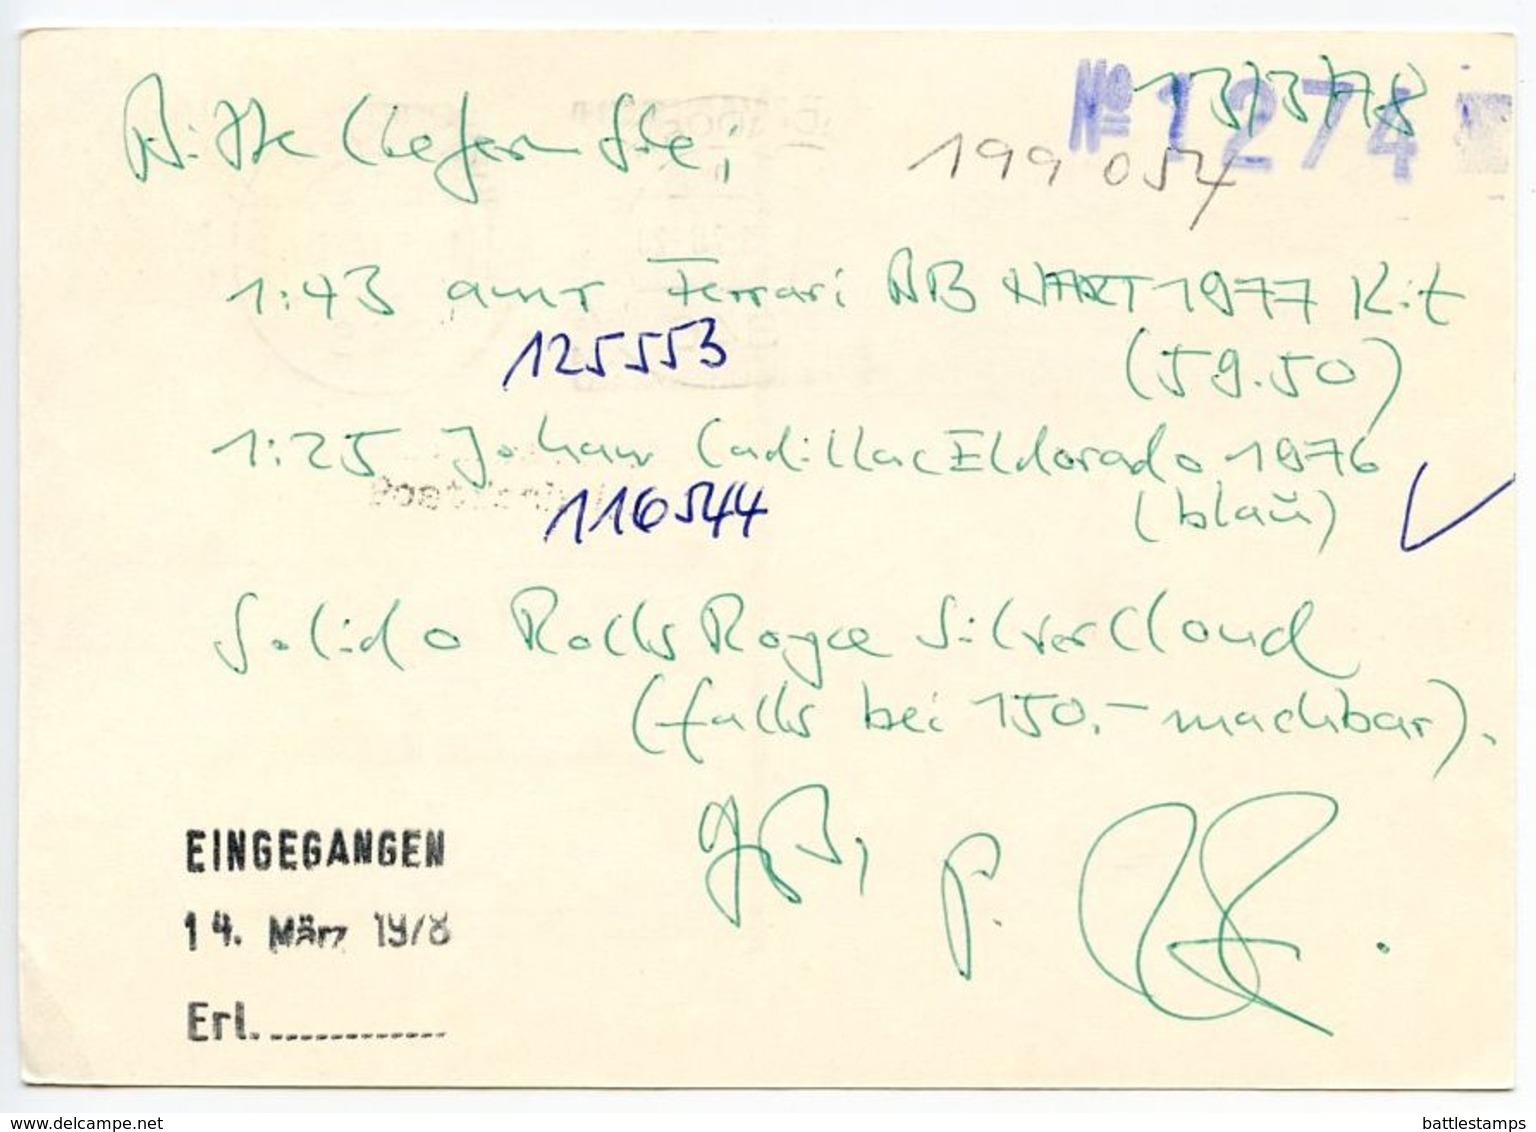 13/3/78
Nº 1274
Bitte liefern Sie;
199 054
1:43 amr Ferrari BB NART 1977 Kit
125553 (59.50)
1:25 Johan Cadillac Eldorado 1976
116544 (blau)
Solido Rolls Royce Silver Cloud
(falls bei 150.- machbar).
EINGEGANGEN
14. März 1978
Erl.
delcampe.net
battlestamps